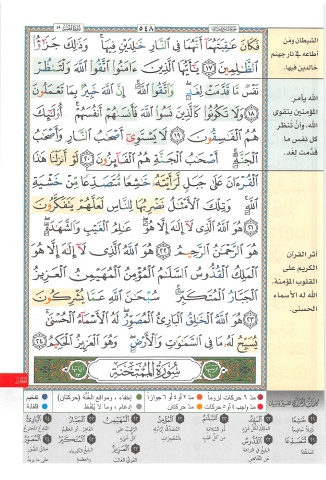 ٥٤٨
فَكَانَ عَٰقِبَتَهُمَآ أَنَّهُمَا فِى ٱلنَّارِ خَٰلِدَيْنِ فِيهَا ۚ وَذَٰلِكَ جَزَٰٓؤُا۟
ٱلظَّٰلِمِينَ ١٧ يَٰٓأَيُّهَا ٱلَّذِينَ ءَامَنُوا۟ ٱتَّقُوا۟ ٱللَّهَ وَلْتَنظُرْ
نَفْسٌ مَّا قَدَّمَتْ لِغَدٍ ۖ وَٱتَّقُوا۟ ٱللَّهَ ۚ إِنَّ ٱللَّهَ خَبِيرٌۢ بِمَا تَعْمَلُونَ
١٨ وَلَا تَكُونُوا۟ كَٱلَّذِينَ نَسُوا۟ ٱللَّهَ فَأَنسَىٰهُمْ أَنفُسَهُمْ ۚ أُو۟لَٰٓئِكَ
هُمُ ٱلْفَٰسِقُونَ ١٩ لَا يَسْتَوِىٓ أَصْحَٰبُ ٱلنَّارِ وَأَصْحَٰبُ
ٱلْجَنَّةِ ۚ أَصْحَٰبُ ٱلْجَنَّةِ هُمُ ٱلْفَآئِزُونَ ٢٠ لَوْ أَنزَلْنَا هَٰذَا
ٱلْقُرْءَانَ عَلَىٰ جَبَلٍ لَّرَأَيْتَهُۥ خَٰشِعًا مُّتَصَدِّعًا مِّنْ خَشْيَةِ
ٱللَّهِ ۚ وَتِلْكَ ٱلْأَمْثَٰلُ نَضْرِبُهَا لِلنَّاسِ لَعَلَّهُمْ يَتَفَكَّرُونَ
٢١ هُوَ ٱللَّهُ ٱلَّذِى لَآ إِلَٰهَ إِلَّا هُوَ ۖ عَٰلِمُ ٱلْغَيْبِ وَٱلشَّهَٰدَةِ ۖ
هُوَ ٱلرَّحْمَٰنُ ٱلرَّحِيمُ ٢٢ هُوَ ٱللَّهُ ٱلَّذِى لَآ إِلَٰهَ إِلَّا هُوَ
ٱلْمَلِكُ ٱلْقُدُّوسُ ٱلسَّلَٰمُ ٱلْمُؤْمِنُ ٱلْمُهَيْمِنُ ٱلْعَزِيزُ
ٱلْجَبَّارُ ٱلْمُتَكَبِّرُ ۚ سُبْحَٰنَ ٱللَّهِ عَمَّا يُشْرِكُونَ
٢٣ هُوَ ٱللَّهُ ٱلْخَٰلِقُ ٱلْبَارِئُ ٱلْمُصَوِّرُ ۖ لَهُ ٱلْأَسْمَآءُ ٱلْحُسْنَىٰ ۚ
يُسَبِّحُ لَهُۥ مَا فِى ٱلسَّمَٰوَٰتِ وَٱلْأَرْضِ ۖ وَهُوَ ٱلْعَزِيزُ ٱلْحَكِيمُ ٢٤
سُورَةُ ٱلْمُمْتَحَنَةِ
الشيطان ومن
أطاعه في نار جهنم
خالدين فيها.
الله يأمر
المؤمنين بتقوى
الله، وأن تنظر
كل نفس ما
قدّمت لغد.
أثر القرآن
الكريم على
القلوب المؤمنة.
الله له الأسماء
الحسنى.
مد ٦ حركات لزوماً
مد ٢ أو ٤ أو ٦ جوازاً
إخفاء، ومواقع الغُنَّة (حركتان)
تفخيم
مد واجب ٤ أو ٥ حركات
مد حركتان
إدغام، وما لا يُلفظ
قلقلة